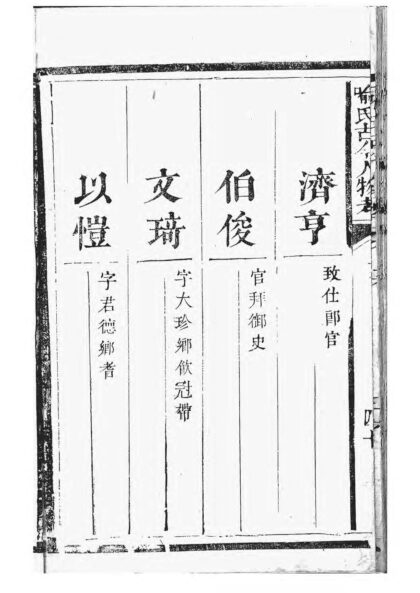 喻氏古今人物考
濟亨
致仕郎官
伯俊
官拜御史
文琦
字大珍鄉飲冠帶
以愷
字君德鄉耆